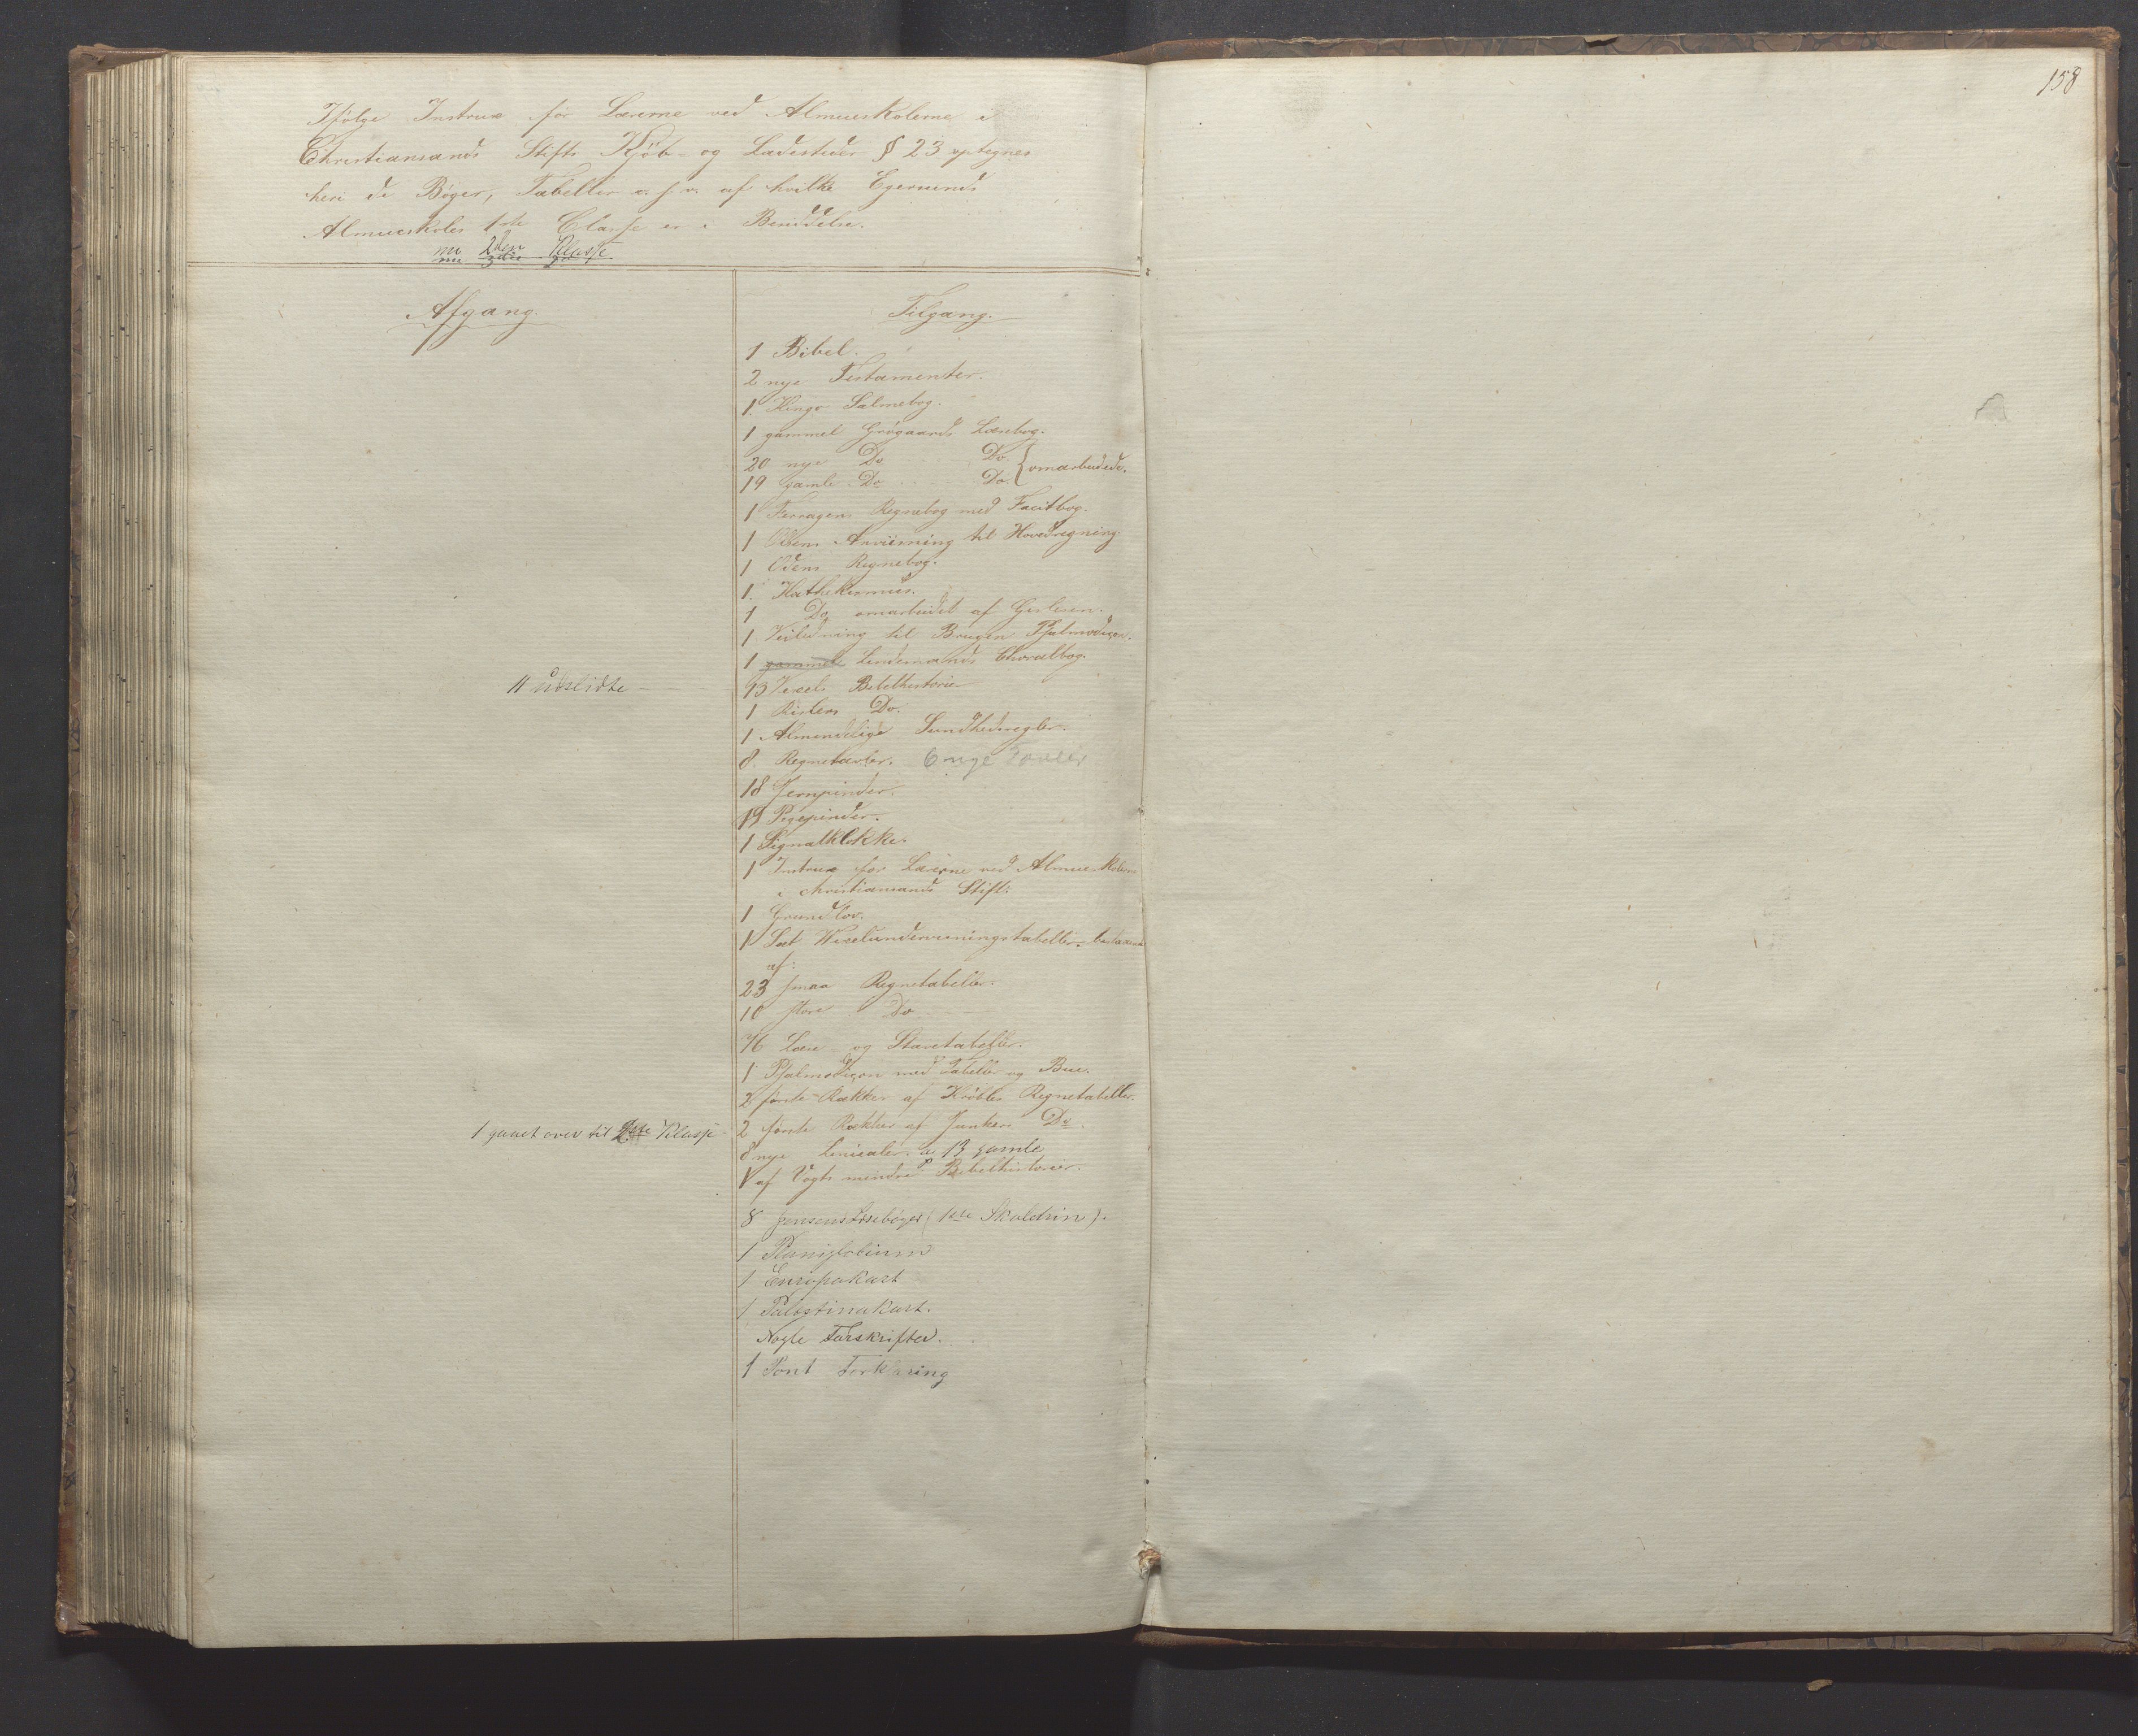 158
Ifølge Instrux for Lærerne ved Almueskolerne i
Christiansands Stifts Kjøb- og Ladesteder § 23 optegnes
heri de Bøger, Tabeller o. s. v. af hvilke Egersunds
Almueskoles 1ste Classe er i Besiddelse.
nu 2den Klasse.
Afgang.
Tilgang.
1 Bibel.
2 nye Testamenter.
1. Kingo Salmebog.
1 gammel Grøgaards Læsebog.
20 nye Do Do
19 gamle Do Do. omarbeidede.
1 Regnebog med Facitbog.
1 Anviisning til Hovedregning.
1 Regnebog.
1. Kathekismus.
1 Do omarbeidet af
1 Veiledning til Brugen Psalmodicon.
1 gammel Lindemands Choralbog.
11 udslidte
13 Vexels Bibelhistorie
1 Do.
1 Almindelige Sundhedsregler.
8. Regnetavler. 6 nye Tavler
18 Jernpinder.
19 Pegepinder.
1 Signalklokke.
1 Instrux for Lærerne ved Almueskolerne
i Christiansands Stift.
1 Grundlov.
1 Sæt Vexelundervisningstabeller bestaaende
af:
23 smaa Regnetabeller.
10 store Do
76 Læse- og Stavetabeller.
1 Psalmodicon med Tabeller og Bue.
2 første Rækker af Krøblis Regnetabeller.
1 gaaet over til Klasse
2 første Rækker af Junkers Do.
8 nye Linealer. a 13 gamle
1 af Vogts mindre Bibelhistorier.
8 Jensens Læsebøger (1ste Skoletrin).
1 Planiglobium
1 Europakart
1 Palæstinakart.
Nogle Forskrifter.
1 Pont Forklaring